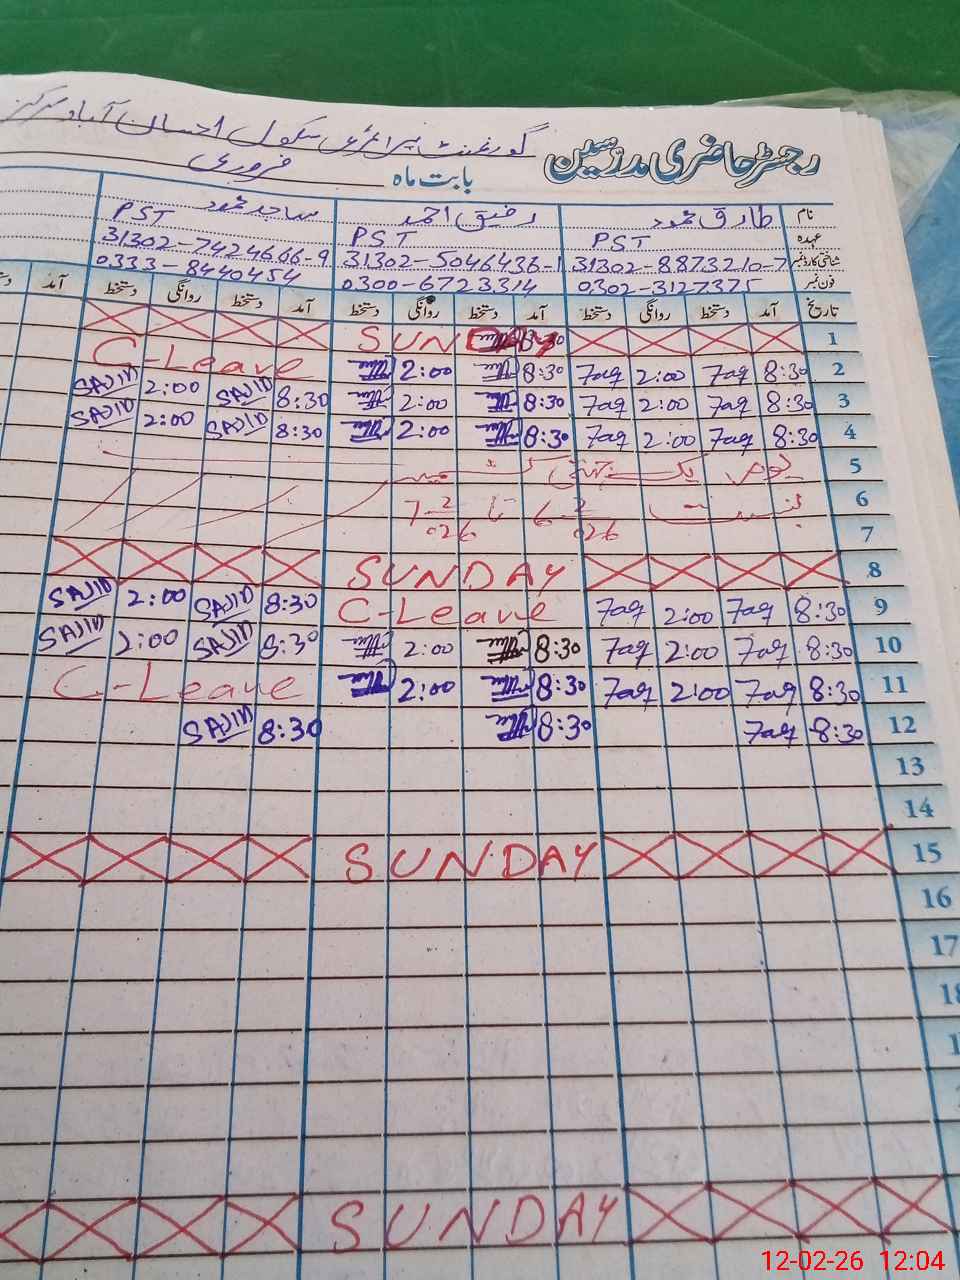 گورنمنٹ پرائمری سکول احسان آباد مرکز
رجسٹر حاضری مدرسین
بابت ماہ فروری
نام طارق محمود رفیق احمد ساجد محمود
عہدہ PST PST PST
شناختی کارڈ نمبر 31302-8873210-7 31302-5046436-1 31302-7424666-9
فون نمبر 0302-3127375 0300-6723314 0333-8440454
تاریخ آمد دستخط روانگی دستخط آمد دستخط روانگی دستخط آمد دستخط روانگی دستخط آمد
1 SUNDAY
2 8:30 7aq 2:00 7aq 8:30 2:00 C-Leave
3 8:30 7aq 2:00 7aq 8:30 2:00 8:30 SAJID 2:00 SAJID
4 8:30 7aq 2:00 7aq 8:30 2:00 8:30 SAJID 2:00 SAJID
5 یوم یک جہتی کشمیر
6 6-2 026 تا 7-2 026
7
8 SUNDAY
9 8:30 7aq 2:00 7aq C-Leave 8:30 SAJID 2:00 SAJID
10 8:30 7aq 2:00 7aq 8:30 2:00 8:30 SAJID 2:00 SAJID
11 8:30 7aq 2:00 7aq 8:30 2:00 C-Leave
12 8:30 7aq 8:30 8:30 SAJID
13
14
15 SUNDAY
16
17
18
SUNDAY
12-02-26 12:04